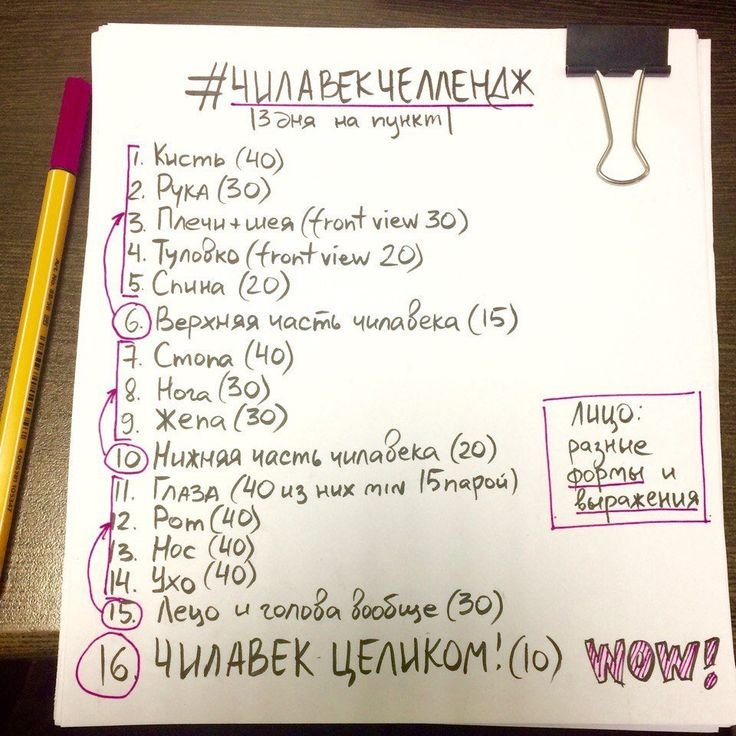 #ЧИЛАВЕКЧЕЛЛЕНДЖ
|3 дня на пункт|
1. Кисть (40)
2. Рука (30)
3. Плечи+шея (front view 30)
4. Туловко (front view 20)
5. Спина (20)
6. Верхняя часть чилавека (15)
7. Стопа (40)
8. Нога (30)
9. Жепа (30)
10 Нижняя часть чилавека (20)
11. Глаза (40 из них min 15 парой)
12. Рот (40)
13. Нос (40)
14. Ухо (40)
15. Лецо и голова вообще (30)
16. ЧИЛАВЕК ЦЕЛИКОМ! (10) WOW!
ЛИЦО:
разные
формы и
выражения